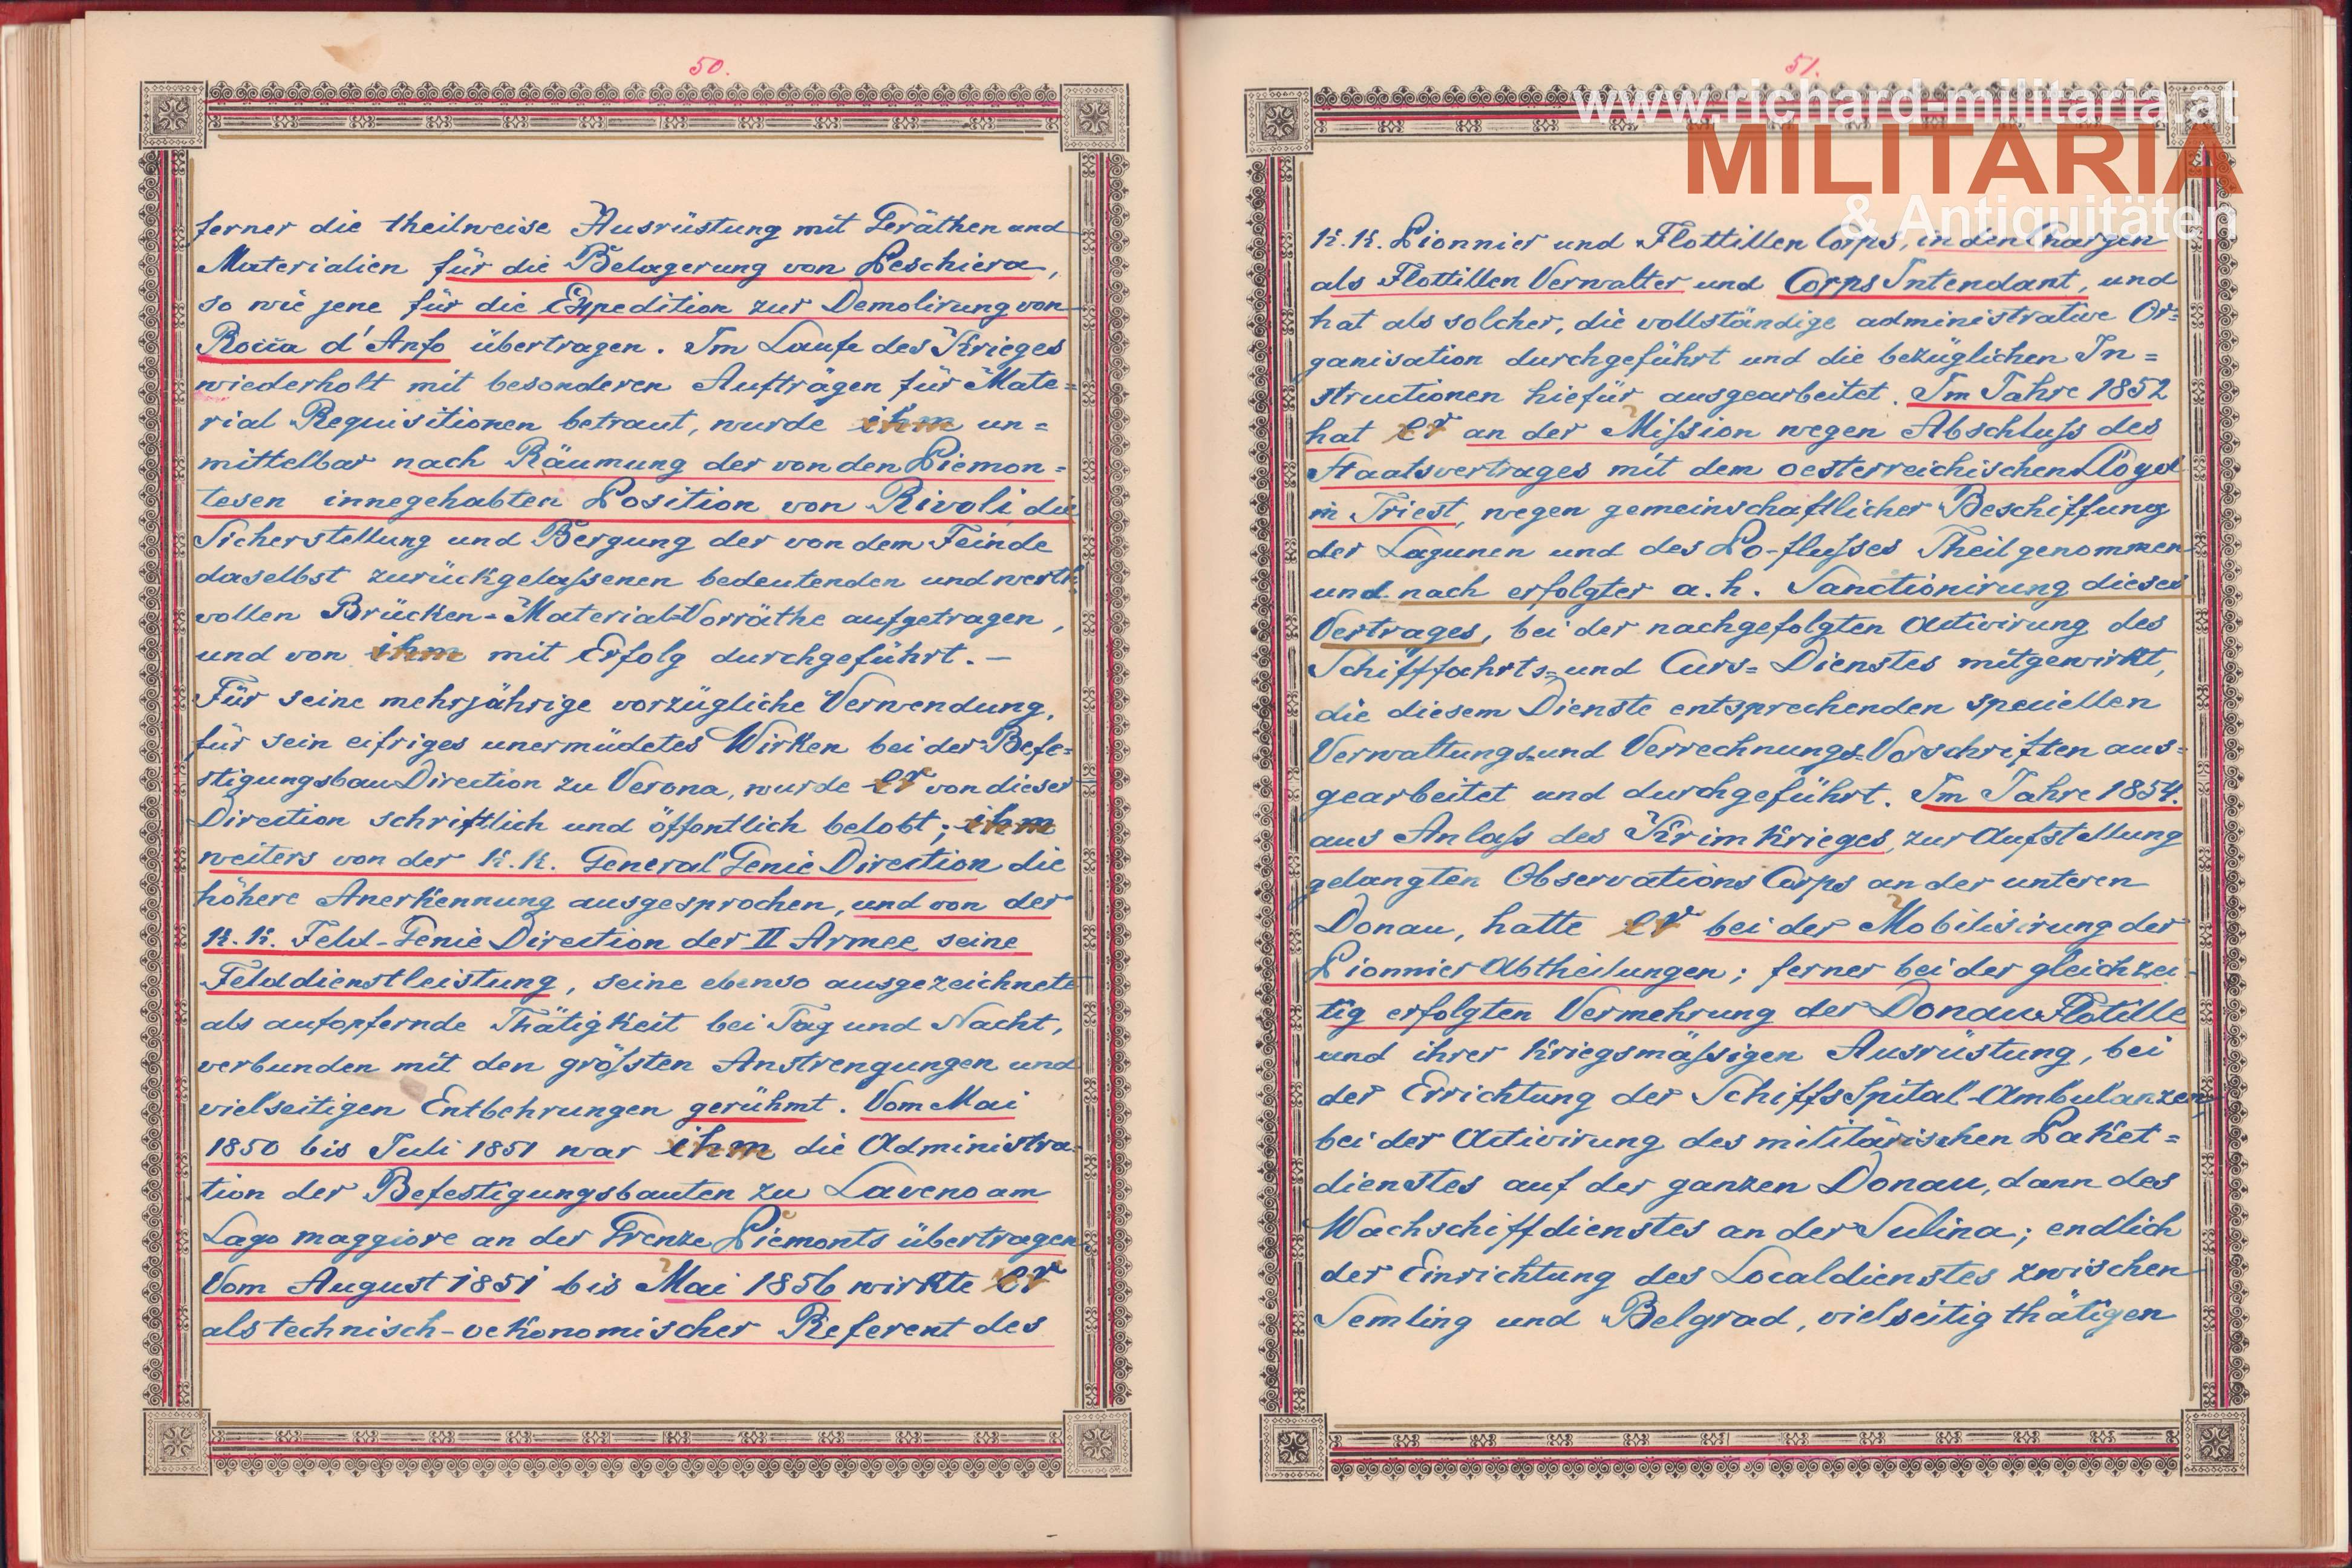 50.
ferner die theilweise Ausrüstung mit Geräthen und
Materialien für die Belagerung von Peschiera,
so wie jene für die Expedition zur Demolirung von
Rocca d'Anfo übertragen. Im Laufe des Krieges
wiederholt mit besonderen Aufträgen für Mate=
rial Requisitionen betraut, wurde ihm un=
mittelbar nach Räumung der von den Piemon=
tesen innegehabten Position von Rivoli die
Sicherstellung und Bergung der von dem Feinde
daselbst zurückgelaßenen bedeutenden und werth
vollen Brücken=Material=Vorräthe aufgetragen,
und von ihm mit Erfolg durchgeführt. —
Für seine mehrjährige vorzügliche Verwendung,
für sein eifriges unermüdetes Wirken bei der Befe=
stigungsbau Direction zu Verona, wurde er von dieser
Direction schriftlich und öffentlich belobt; ihm
weiters von der K.K. General Genie Direction die
höhere Anerkennung ausgesprochen, und von der
K.K. Feld-Genie Direction der II Armee seine
Felddienstleistung, seine ebenso ausgezeichnete
als aufopfernde Thätigkeit bei Tag und Nacht,
verbunden mit den größten Anstrengungen und
vielseitigen Entbehrungen gerühmt. Vom Mai
1850 bis Juli 1851 war ihm die Administra=
tion der Befestigungsbauten zu Laveno am
Lago maggiore an der Grenze Piemonts übertragen
Vom August 1851 bis Mai 1856 wirkte er
als technisch-oekonomischer Referent des
51.
www.richard-militaria.at
MILITARIA
& Antiquitäten
K.K. Pionnier und Flottillen Corps, in den Chargen
als Flottillen Verwalter und Corps Intendant, und
hat als solcher, die vollständige administrative Or=
ganisation durchgeführt und die bezüglichen In=
structionen hiefür ausgearbeitet. Im Jahre 1852
hat er an der Mißion wegen Abschluß des
Staatsvertrages mit dem oesterreichischen Lloyd
in Triest, wegen gemeinschaftlicher Beschiffung
der Lagunen und des Po-flußes Theil genommen
und nach erfolgter a.h. Sanctionirung dieses
Vertrages, bei der nachgefolgten Activirung des
Schifffahrts=und Curs=Dienstes mitgewirkt,
die diesem Dienste entsprechenden speciellen
Verwaltungs=und Verrechnungs=Vorschriften aus=
gearbeitet und durchgeführt. Im Jahre 1854.
aus Anlaß des Krimkrieges, zur Aufstellung
gelangten Observations Corps an der unteren
Donau, hatte er bei der Mobilisirung der
Pionnier Abtheilungen; ferner bei der gleichzei=
tig erfolgten Vermehrung der Donau Flotille
und ihrer kriegsmäßigen Ausrüstung, bei
der Errichtung der Schiffs Spital-Ambulanzen,
bei der Activirung des militärischen Paket=
dienstes auf der ganzen Donau, dann des
Wachschiffdienstes an der Sulina; endlich
der Einrichtung des Localdienstes zwischen
Semling und Belgrad, vielseitig thätigen